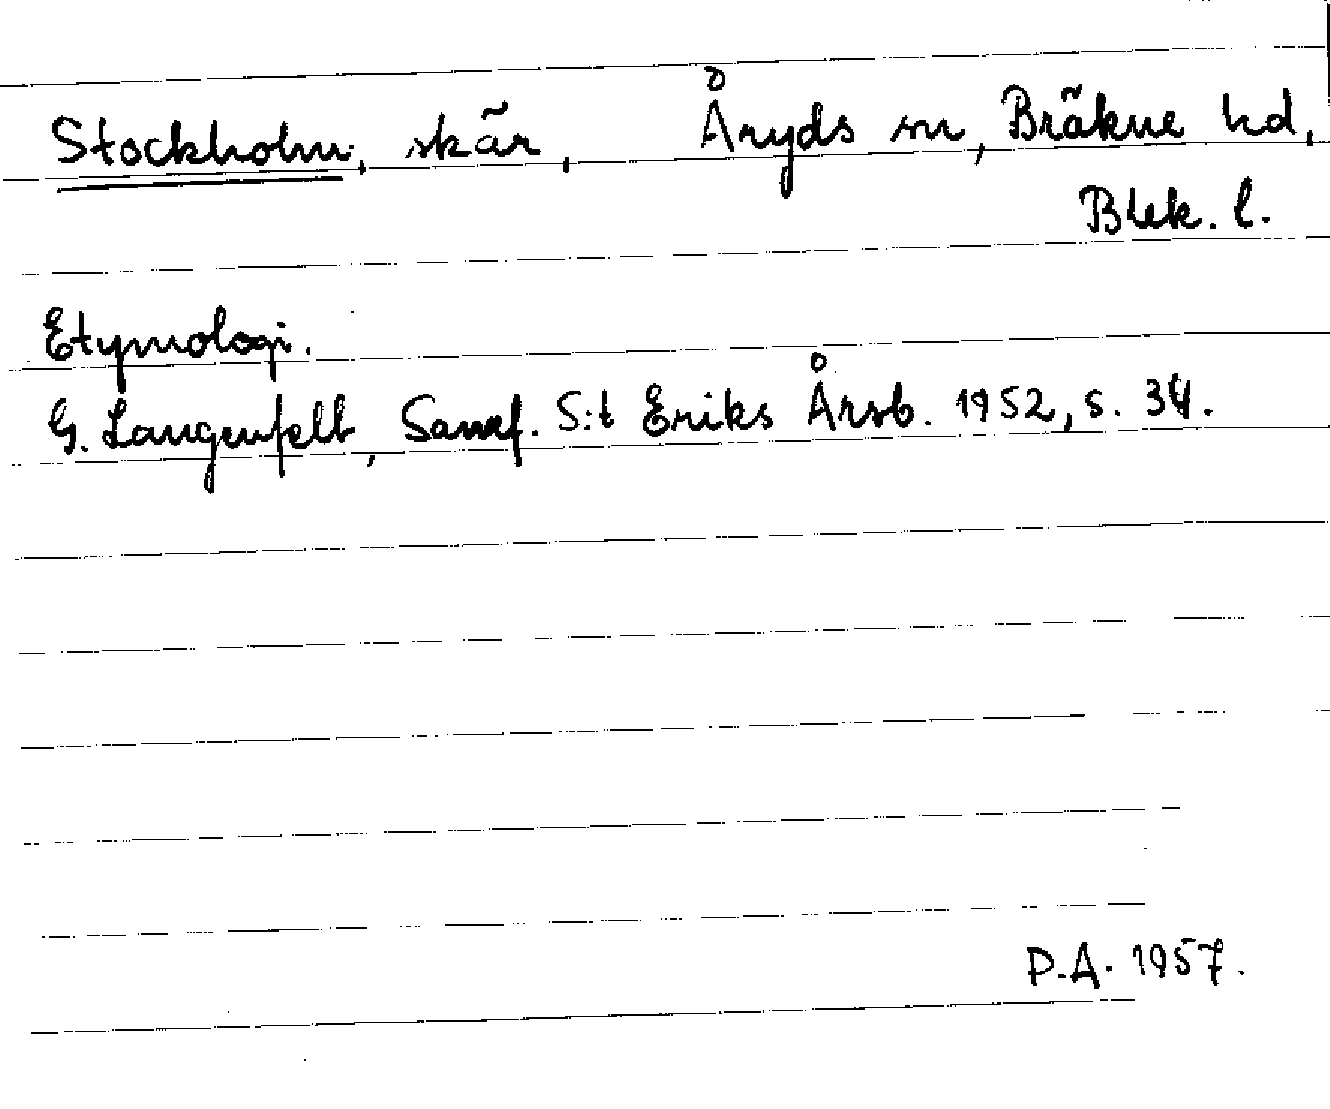 Stockholm, skär, Åryds sn, Bräkne hd,
Blek. l.
Etymologi.
G. Langenfelt, Samf. S:t Eriks Årsb. 1952, s. 34.
P.A. 1957.